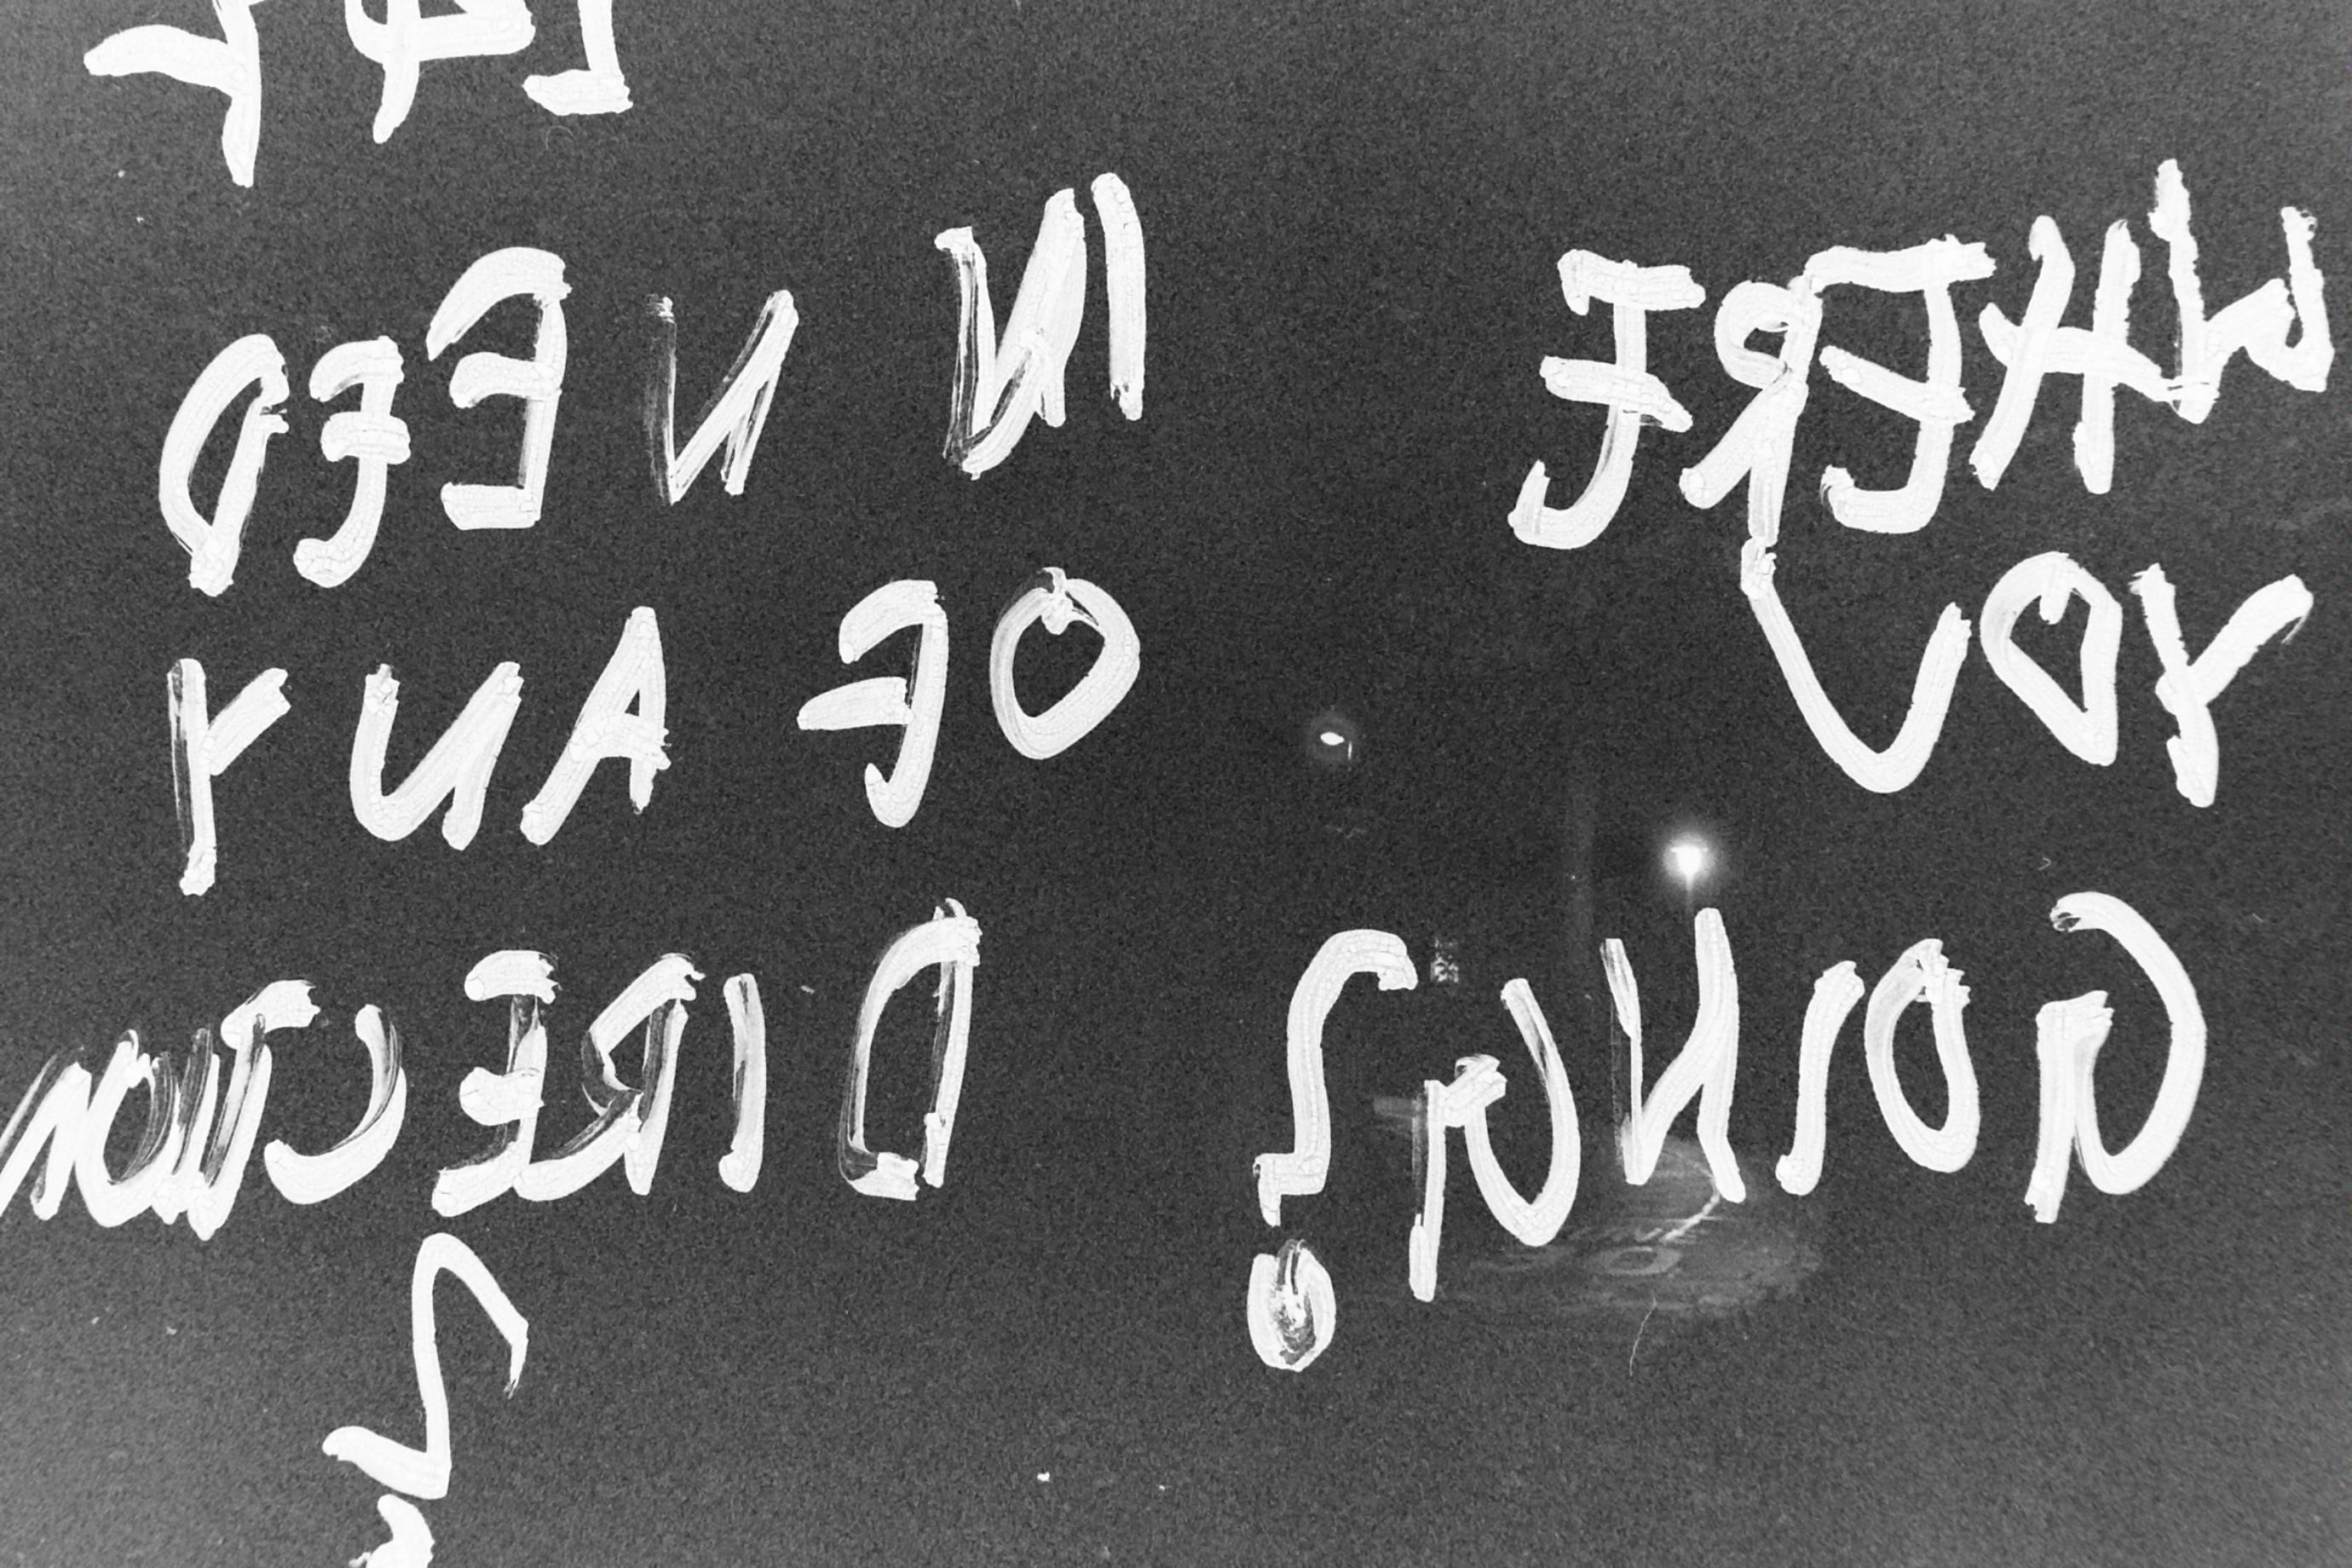 WHERE
YOU
GOING?
IN NEED
OF ANY
DIRECTION
?